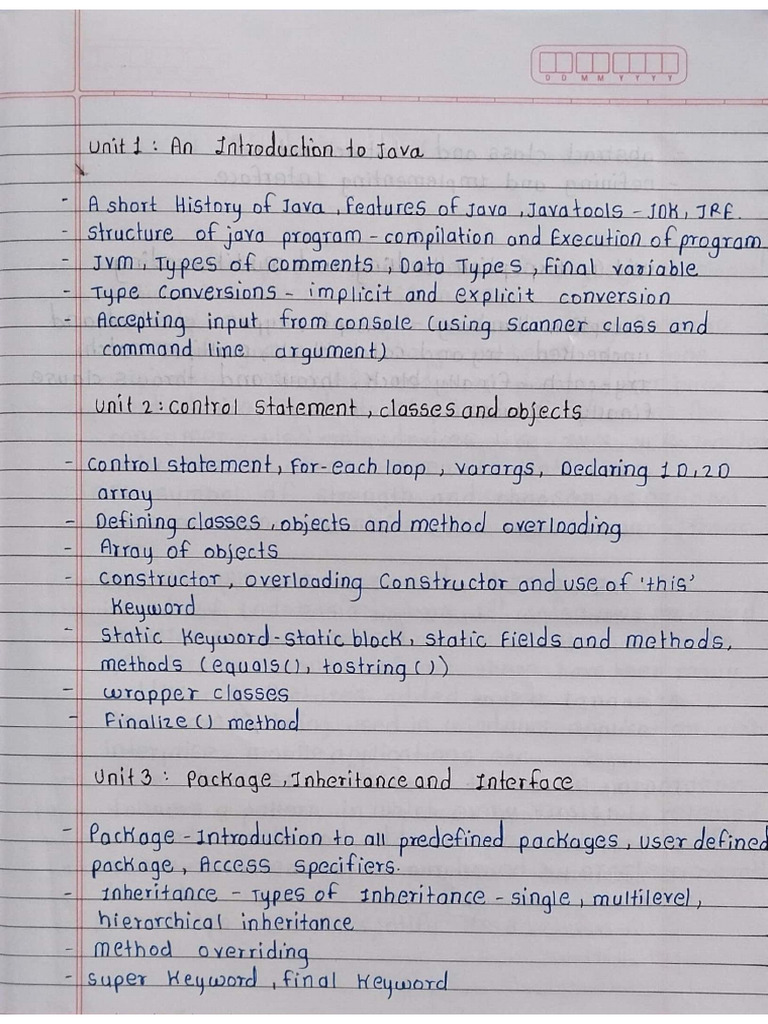 D D M M Y Y Y Y
Unit 1 : An Introduction to Java
- A short History of Java , features of Java , Java tools - JDK, JRE.
- Structure of java program - compilation and Execution of program
- JVM , Types of comments , Data Types , Final variable
- Type Conversions - implicit and explicit conversion
- Accepting input from console (using scanner class and
command line argument)
Unit 2 : control statement , classes and objects
- control statement , for-each loop , varargs, Declaring 1D, 2D
array
- Defining classes , objects and method overloading
- Array of objects
- constructor , overloading Constructor and use of 'this'
Keyword
- static Keyword - static block , static fields and methods,
methods (equals(), tostring())
- wrapper classes
- finalize() method
Unit 3 : Package , Inheritance and Interface
- Package - Introduction to all predefined packages , user defined
package , Access specifiers.
- Inheritance - Types of Inheritance - single , multilevel ,
hierarchical inheritance
- method overriding
- super Keyword , final Keyword